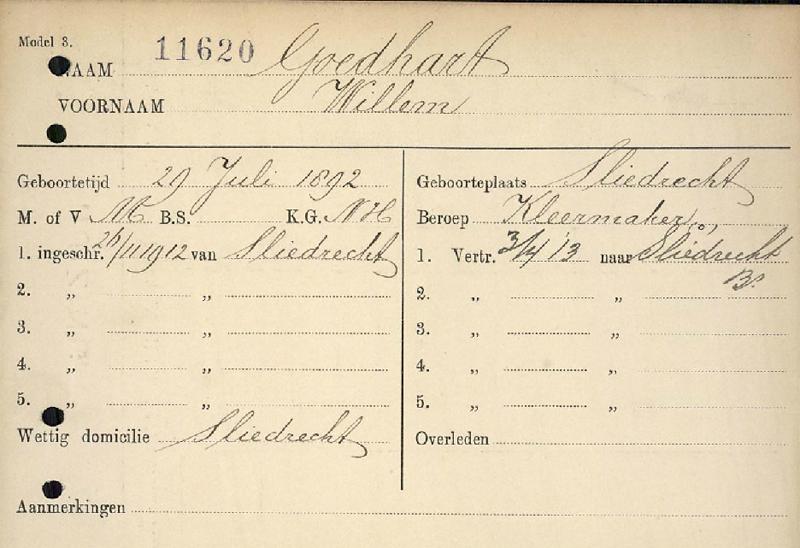 Model 3. 11620
NAAM Goedhart
VOORNAAM Willem
Geboortetijd 29 Juli 1892
M. of V M B.S. K.G. NH
1. ingeschr. 26/11 1912 van Sliedrecht
2. „ „
3. „ „
4. „ „
5. „ „
Wettig domicilie Sliedrecht
Aanmerkingen
Geboorteplaats Sliedrecht
Beroep Kleermaker
1. Vertr. 3/4 '13 naar Sliedrecht
B.
2. „ „
3. „ „
4. „ „
5. „ „
Overleden